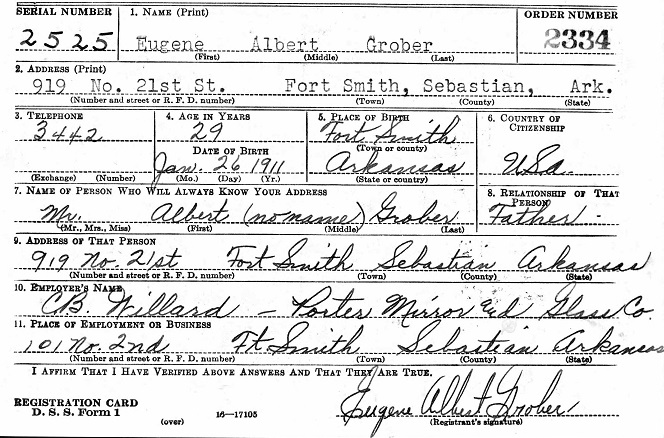 SERIAL NUMBER 1. NAME (Print) ORDER NUMBER
2525 Eugene Albert Grober 2334
(First) (Middle) (Last)
2. ADDRESS (Print)
919 No. 21st St. Fort Smith, Sebastian, Ark.
(Number and street or R. F. D. number) (Town) (County) (State)
3. TELEPHONE 4. AGE IN YEARS 5. PLACE OF BIRTH 6. COUNTRY OF CITIZENSHIP
3442 29 Fort Smith
(Town or county)
DATE OF BIRTH
Jan. 26 1911 Arkansas USA.
(Exchange) (Number) (Mo.) (Day) (Yr.) (State or country)
7. NAME OF PERSON WHO WILL ALWAYS KNOW YOUR ADDRESS 8. RELATIONSHIP OF THAT PERSON
Mr. Albert (no name) Grober Father -
(Mr., Mrs., Miss) (First) (Middle) (Last)
9. ADDRESS OF THAT PERSON
919 No. 21st Fort Smith Sebastian Arkansas
(Number and street or R. F. D. number) (Town) (County) (State)
10. EMPLOYER'S NAME
CB. Willard - Porter Mirror and Glass Co.
11. PLACE OF EMPLOYMENT OR BUSINESS
101 No. 2nd Ft Smith Sebastian Arkansas
(Number and street or R. F. D. number) (Town) (County) (State)
I AFFIRM THAT I HAVE VERIFIED ABOVE ANSWERS AND THAT THEY ARE TRUE.
REGISTRATION CARD
D. S. S. Form 1 16-17105 Eugene Albert Grober
(over) (Registrant's signature)